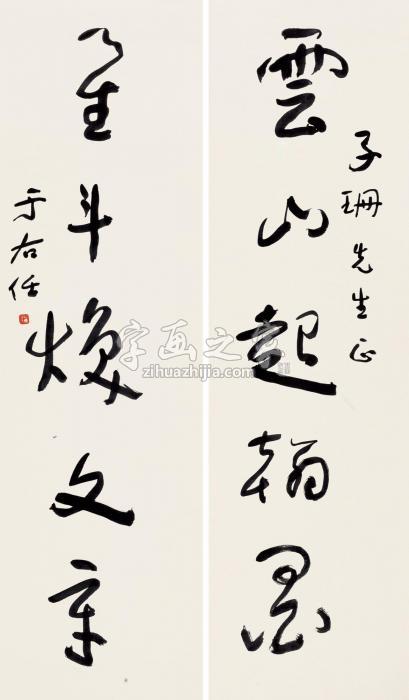 子珊先生正
雲山起翰墨
星斗焕文章
于右任
字画之家
zihuazhijia.com